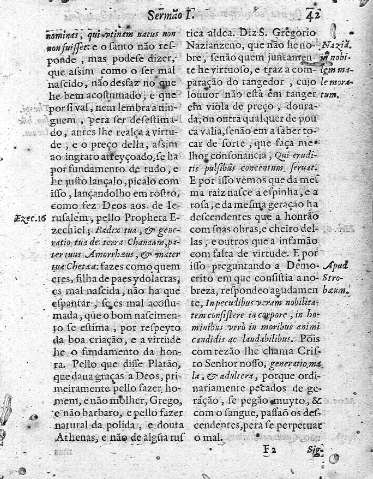 Sermão I.
42
nominas, qui utinem natus non
non fuisset: e o santo não res-
ponde, mas podese dizer,
que assim como o ser mal
nascido, não desfaz no que
he bem acostumado; e que
por si val, nem lembra a nin-
guem, pera ser desestima-
do, antes lhe realça a virtu-
de, e o preço della, assim
ao ingrato affeyçoado, se ha
por fundamento de tudo, e
he justo lançalo, picalo com
isso, lançandolho em rostro,
como fez Deos aos de Ie-
rusalem, pello Propheta E-
zechiel; Radix tua, & gene-
ratio tua de terra Chanaam, pa-
ter tuus Amorrhæus, & mater
tua Chetæa: fazes como quem
eres, filha de pays ydolatras,
es mal nascida, não ha que
espantar, se es mal acostu-
mada, que o bom nascimen-
to se estima, por respeyto
da boa criação, e a virtude
he o fundamento da hon-
ra. Pello que disse Platão,
que daua graças a Deos, pri-
meiramente pello fazer, ho-
mem, e não molher, Grego,
e não barbaro, e pello fazer
natural da polida, e douta
Athenas, e não de algũa rus
Ezec. 16
tica aldea. Diz S. Gregorio
Nazianzeno, que não he no-
bre, senão quem juntamen-
te he virtuoso, e traz a com-
paração do tangedor, cujo
louuor não está em tanger
em viola de preço, doura-
da, ou outra qualquer de pou
ca valia, senão em a saber to-
car de sorte, que faça me-
lhor consonancia, Qui erudi-
tis pulsibus concentum seruat.
E por isso vemos que da mes
ma raiz nasce a espinha, e a
rosa, e da mesma geração ha
descendentes que a honrão
com suas obras, e cheiro del-
las, e outros que a infamão
com falta de virtude. E por
isso preguntando a Demo-
crito em que consistia a no-
breza, respondeo agudamen
te, In peculibus veram nobilita-
tem consistere in corpore, in ho-
minibus verò in moribus animi
candidis ac laudabilibus. Pois
com rezão lhe chama Cris-
to Senhor nosso, generatio ma-
la, & adultera, porque ordi-
nariamente pecados de ge-
ração, se pegão muyto, &
com o sangue, passão os des-
cendentes, pera se perpetuar
o mal.
Naziã.
in nobi-
lem ma-
le mora-
tum.
Apud
Stro-
bæum.
F 2
Sig-